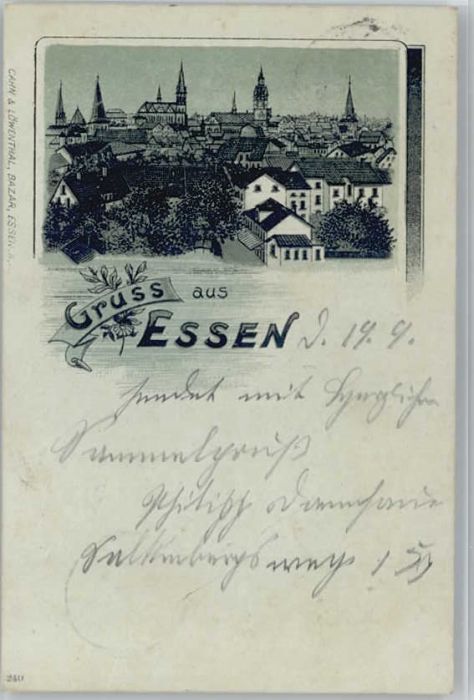 CAHN & LÖWENTHAL, BAZAR, ESSEN
Gruss aus
ESSEN d. 19. 9.
sendet mit herzlichem
Sammelgruß
Philipp
240